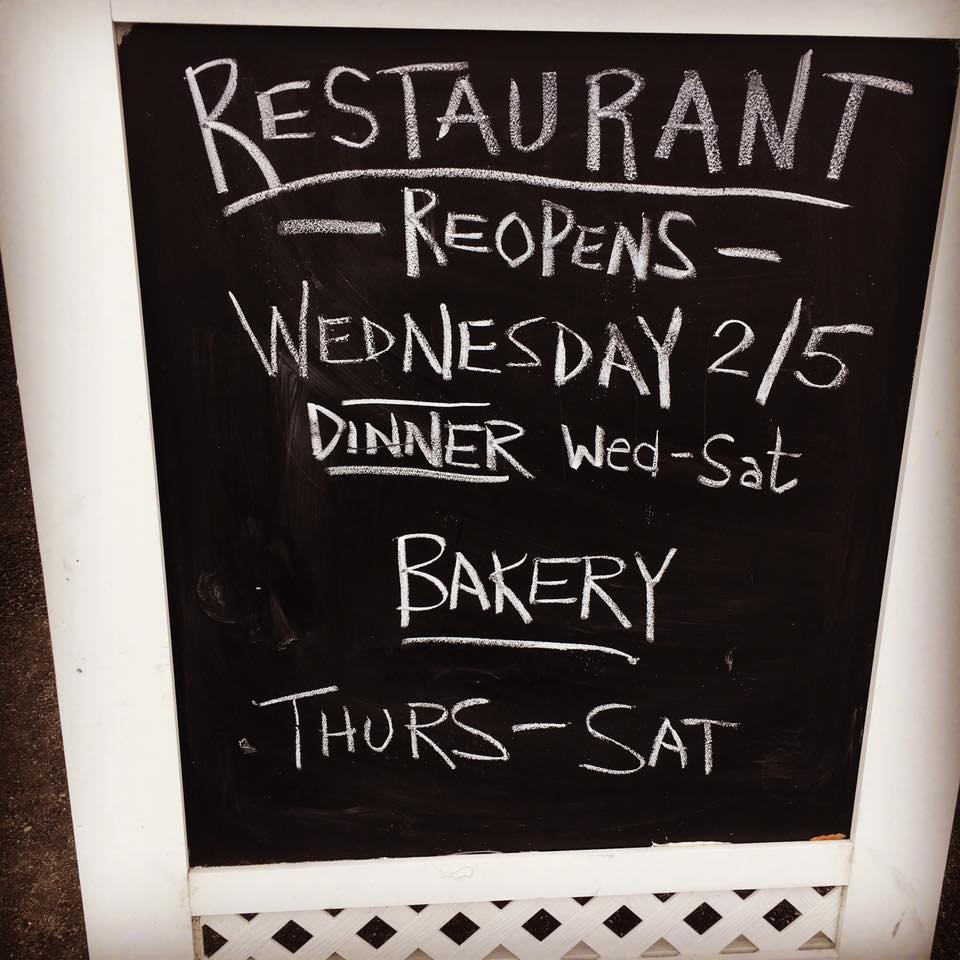 RESTAURANT
- REOPENS -
WEDNESDAY 2/5
DINNER Wed-Sat
BAKERY
THURS-SAT